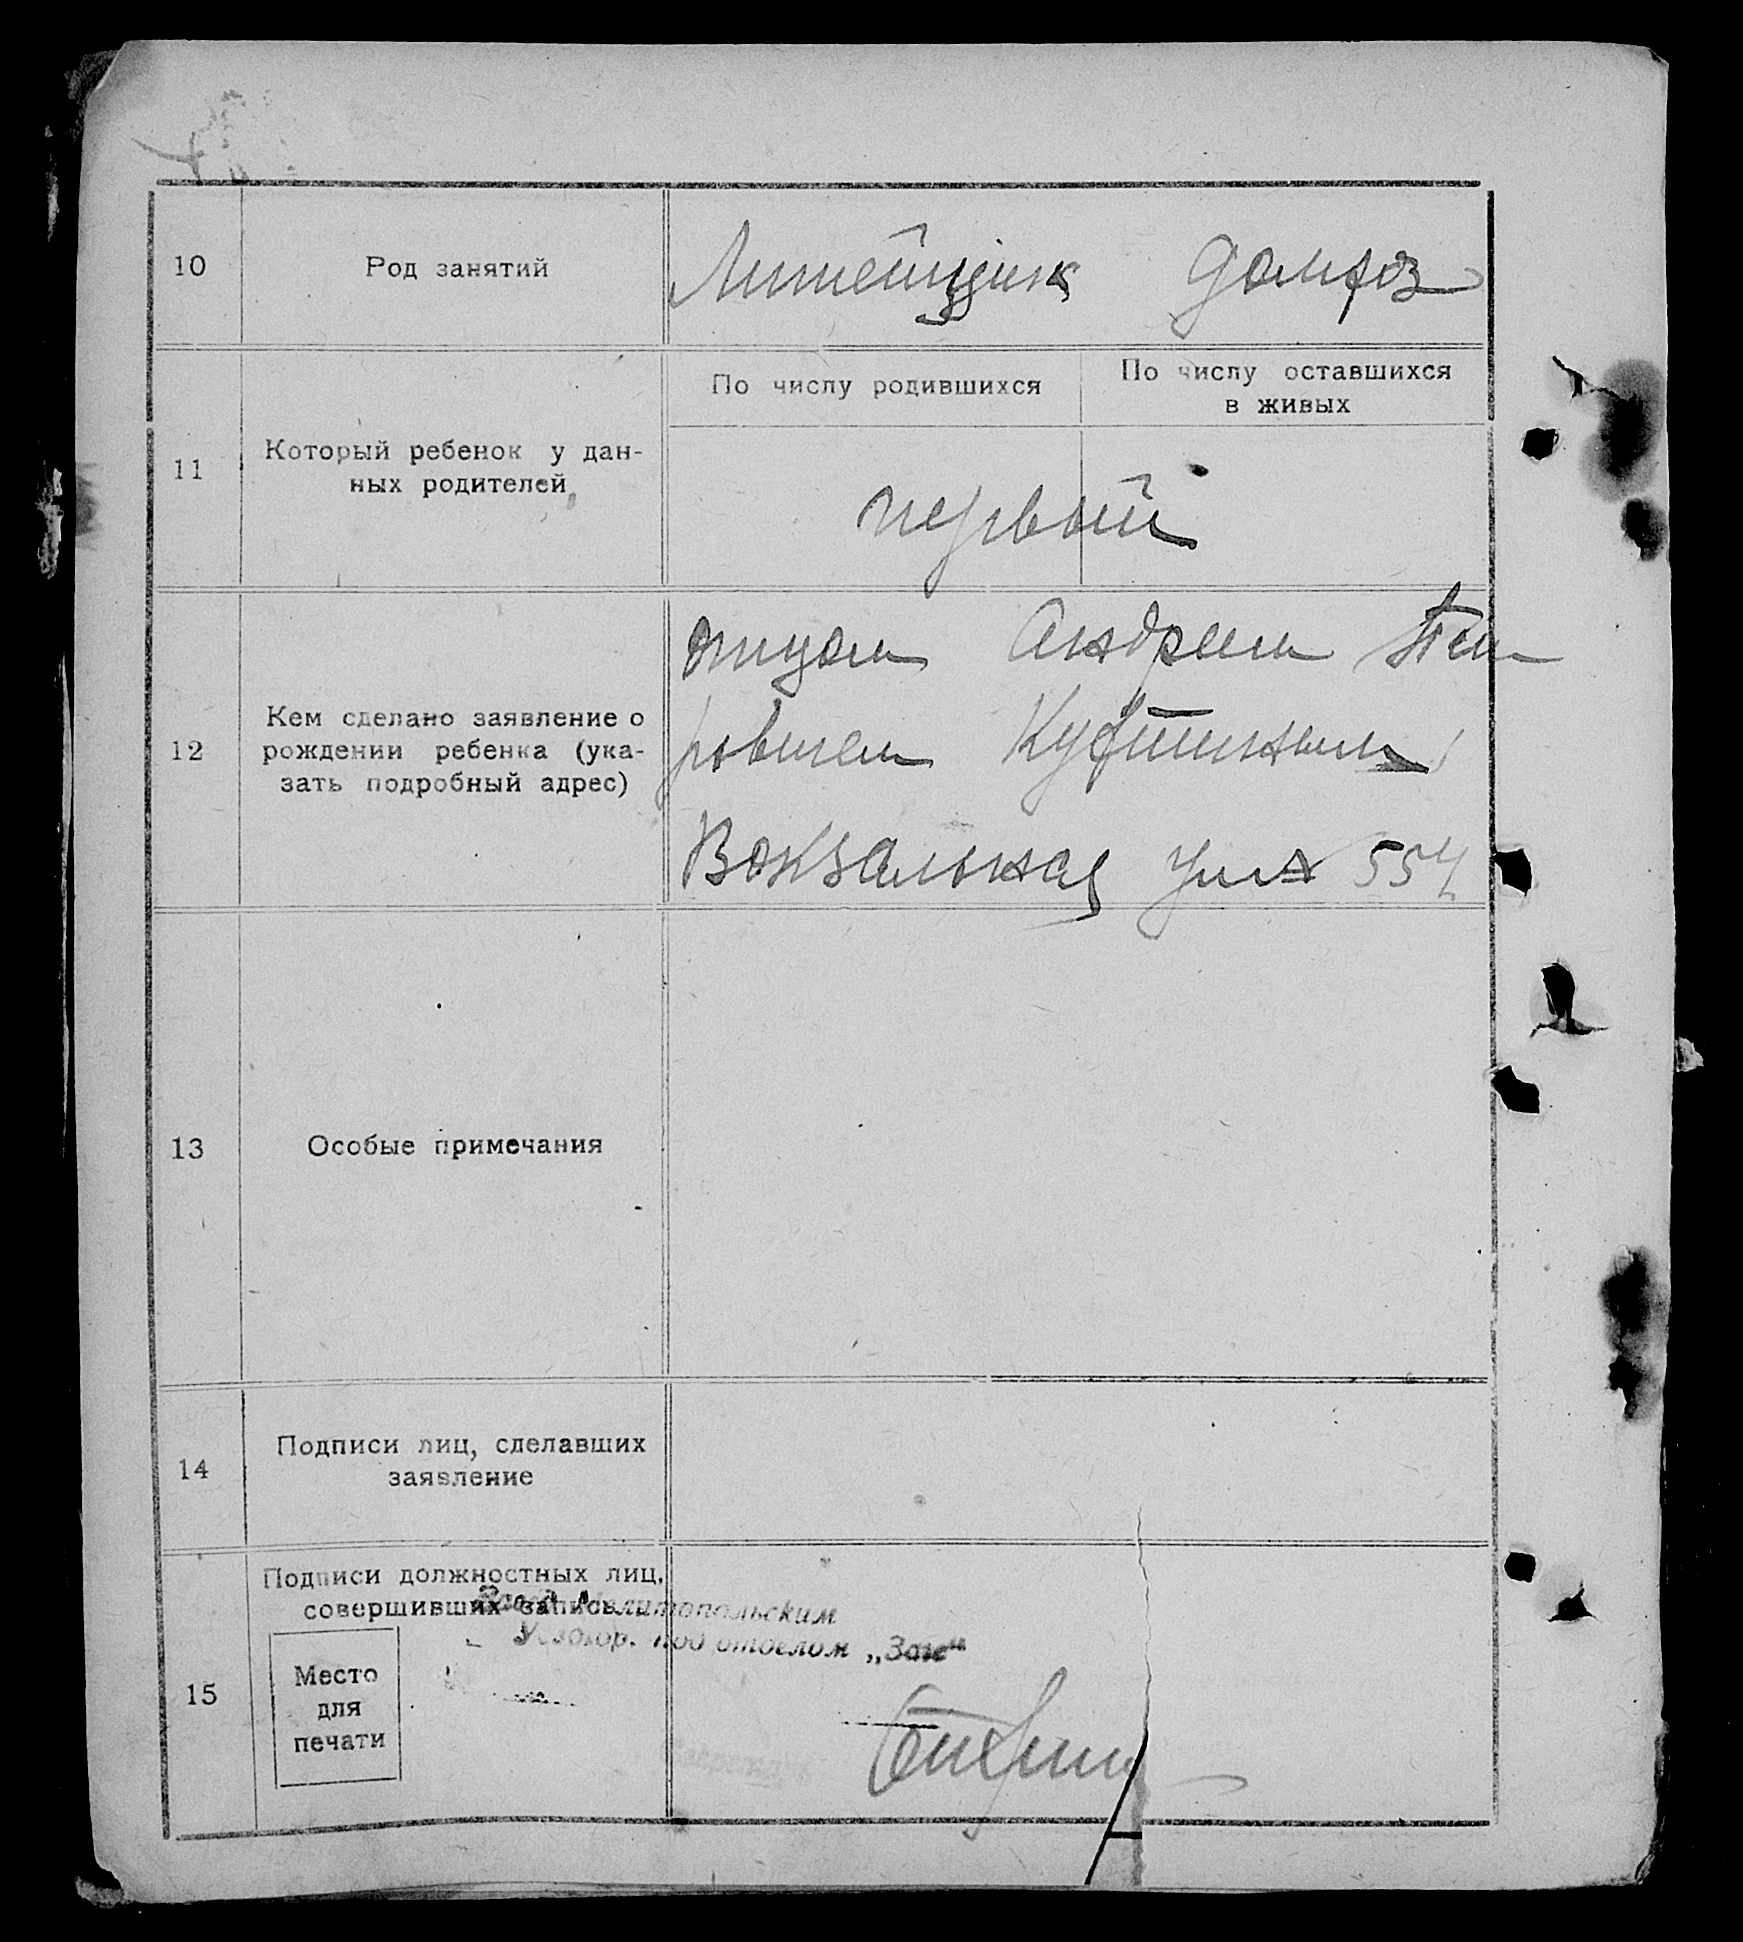 10
Род занятий
Литейщик домхоз
11
Который ребенок у дан-
ных родителей
По числу родившихся
По числу оставшихся
в живых
первый
12
Кем сделано заявление о
рождении ребенка (ука-
зать подробный адрес)
отцом Андреем Пет
ровичем
Вокзальная ул
13
Особые примечания
14
Подписи лиц, сделавших
заявление
15
Подписи должностных лиц,
совершивших запись
Мелитопольским
под отделом „Загс“
Место
для
печати